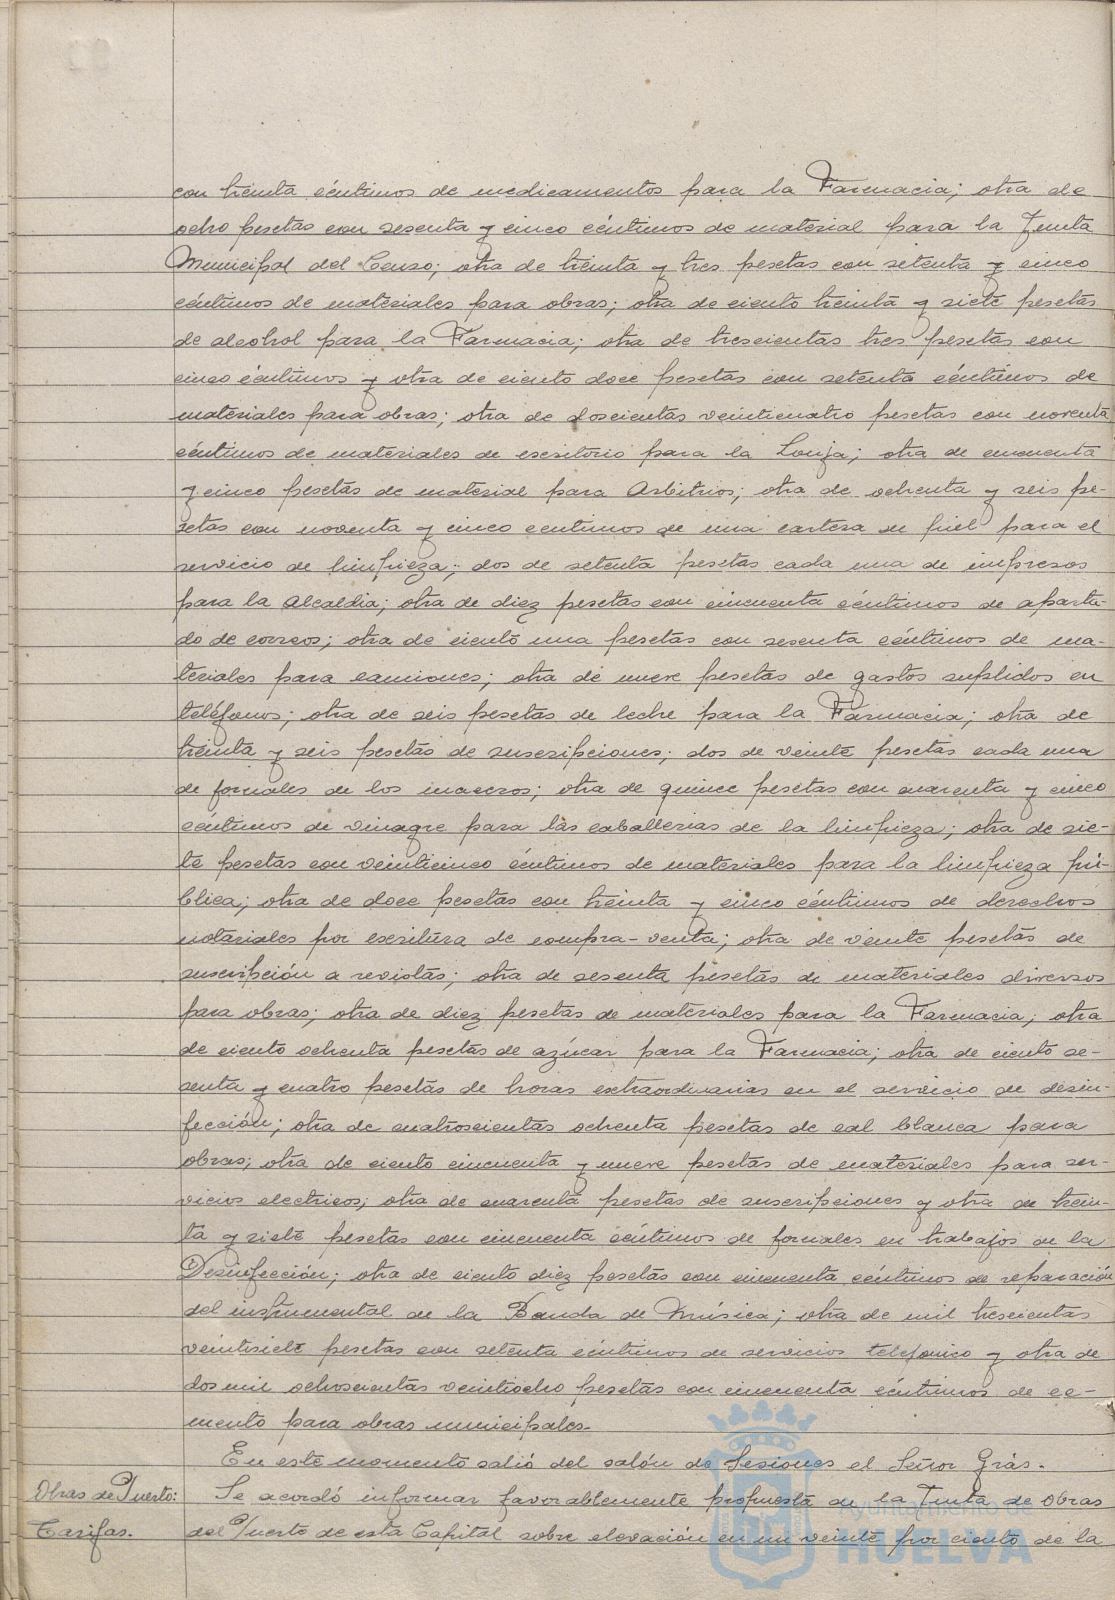 con treinta céntimos de medicamentos para la Farmacia; otra de
ocho pesetas con sesenta y cinco céntimos de material para la Junta
Municipal del Censo; otra de treinta y tres pesetas con setenta y cinco
céntimos de materiales para obras; otra de ciento treinta y siete pesetas
de alcohol para la Farmacia; otra de trescientas tres pesetas con
cinco céntimos y otra de ciento doce pesetas con setenta céntimos de
materiales para obras; otra de doscientas veinticuatro pesetas con noventa
céntimos de materiales de escritorio para la Lonja; otra de cincuenta
y cinco pesetas de material para Arbitrios; otra de ochenta y seis pe-
setas con noventa y cinco centimos de una cartera en piel para el
servicio de limpieza; dos de setenta pesetas cada una de impresos
para la Alcaldia; otra de diez pesetas con cincuenta céntimos de aparta-
do de correos; otra de ciento una pesetas con sesenta céntimos de ma-
teriales para camiones; otra de nueve pesetas de gastos suplidos en
teléfonos; otra de seis pesetas de leche para la Farmacia; otra de
treinta y seis pesetas de suscripciones; dos de veinte pesetas cada una
de jornales de los maceros; otra de quince pesetas con cuarenta y cinco
céntimos de vinagre para las caballerias de la limpieza; otra de sie-
te pesetas con veinticinco céntimos de materiales para la limpieza pú-
blica; otra de doce pesetas con treinta y cinco céntimos de derechos
notariales por escritura de compra-venta; otra de veinte pesetas de
suscripción a revistas; otra de sesenta pesetas de materiales diversos
para obras; otra de diez pesetas de materiales para la Farmacia; otra
de ciento ochenta pesetas de azúcar para la Farmacia; otra de ciento se-
senta y cuatro pesetas de horas extraordinarias en el servicio de desin-
fección; otra de cuatroscientas ochenta pesetas de cal blanca para
obras; otra de ciento cincuenta y nueve pesetas de materiales para ser-
vicios electricos; otra de cuarenta pesetas de suscripciones y otra de trein-
ta y siete pesetas con cincuenta céntimos de jornales en trabajos en la
Desinfección; otra de ciento diez pesetas con cincuenta céntimos de reparación
del instrumental de la Banda de Música; otra de mil trescientas
veintisiete pesetas con setenta céntimos de servicios telefonico y otra de
dos mil ochoscientas veintiocho pesetas con cincuenta céntimos de ce-
mento para obras municipales.
En este momento salió del salón de Sesiones el Señor Grás.
Obras de Puerto: Se acordó informar favorablemente propuesta de la Junta de Obras
Tarifas. del Puerto de esta Capital sobre elevación en un veinte por ciento de la
Ayuntamiento de
HUELVA